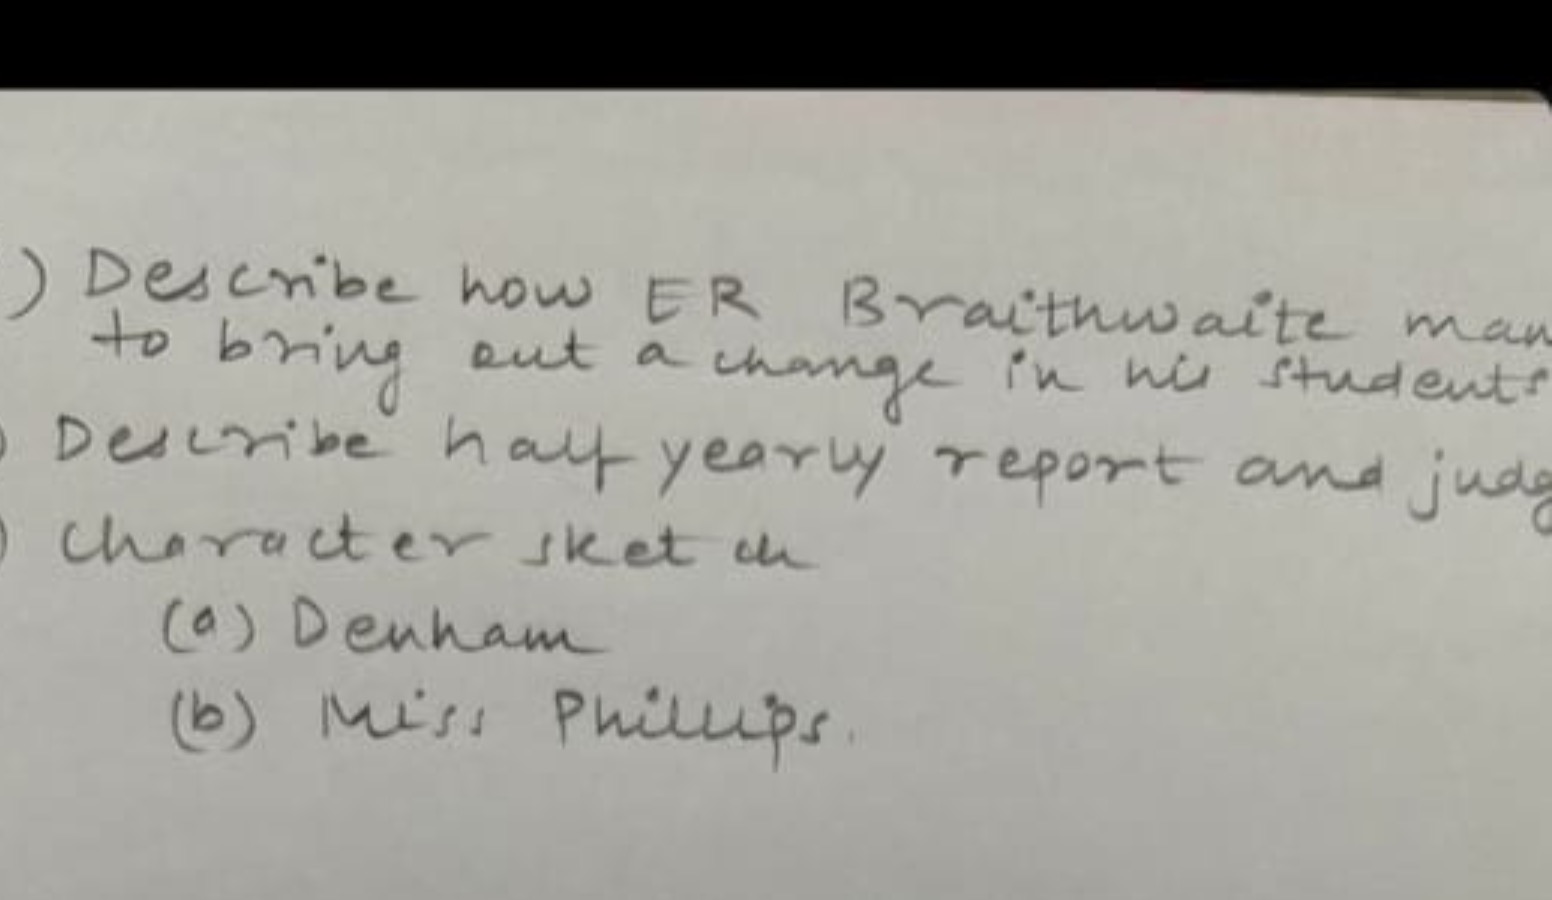 ) Describe how ER Braithwaite man
to bring out a change in his students
) Describe half yearly report and judg
) Character sketch
(a) Denham
(b) Miss Phillips.